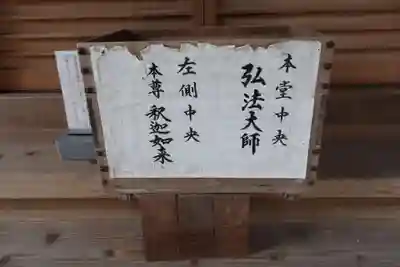 本堂中央
弘法大師
左側中央
本尊 釈迦如来